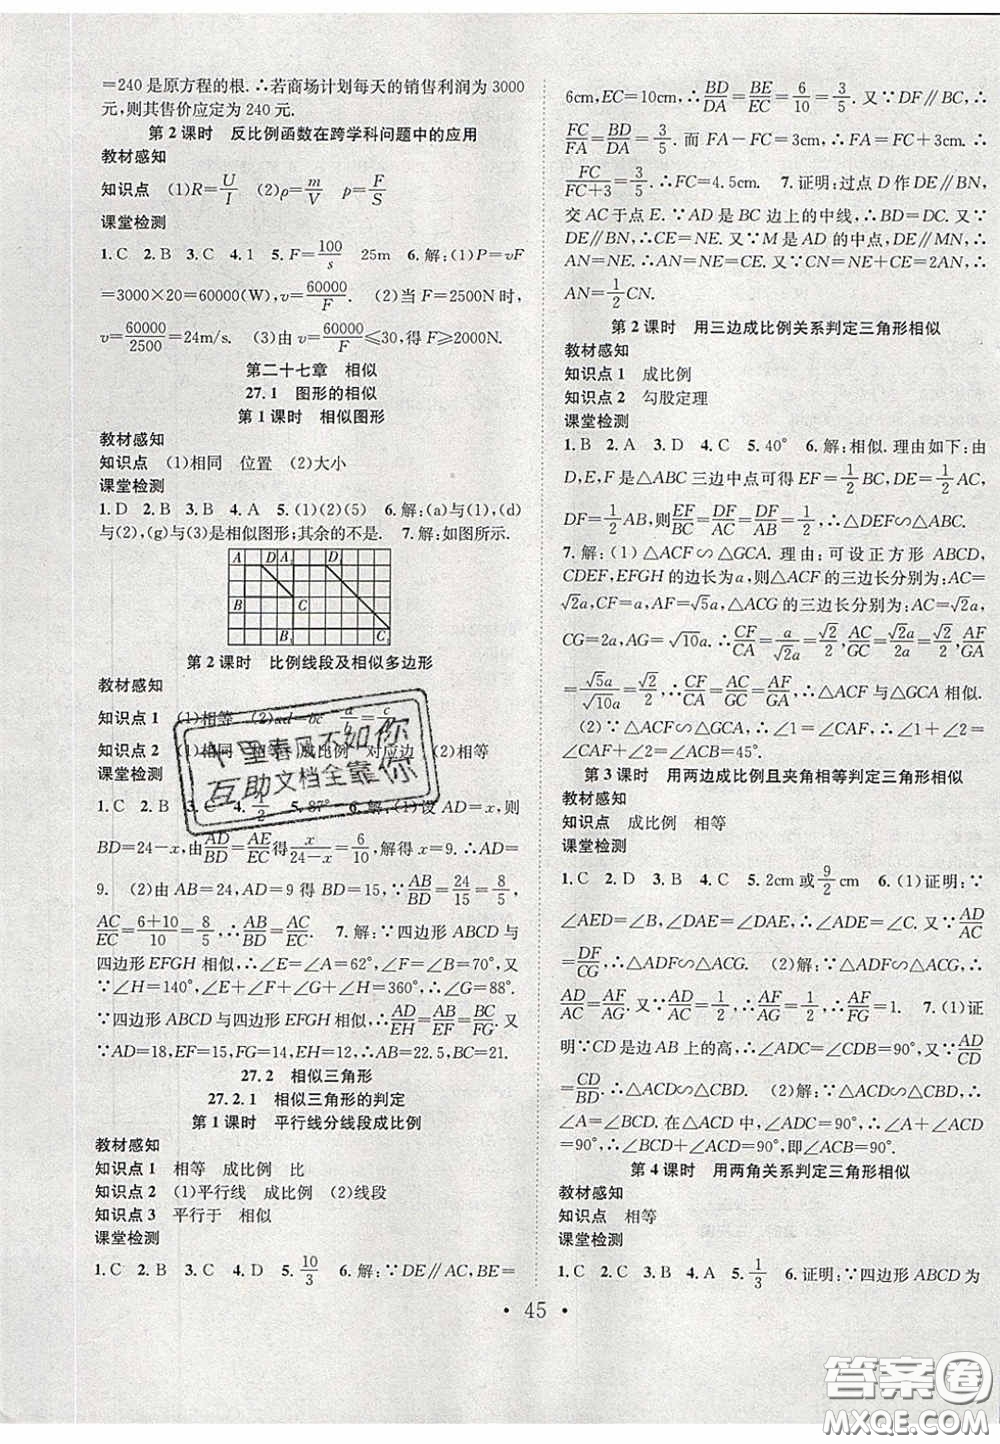 =240 是原方程的根.∴若商场计划每天的销售利润为 3000
元,则其售价应定为 240 元.
第 2 课时 反比例函数在跨学科问题中的应用
教材感知
知识点 (1)R=U/I (2)ρ=m/V p=F/S
课堂检测
1.C 2.B 3.C 4.1 5.F=100/s 25m 6.解:(1)P=vF
=3000×20=60000(W),v=60000/F. (2)当 F=2500N 时,
v=60000/2500=24m/s. (3)由60000/F≤30,得 F≥2000N.
第二十七章 相似
27.1 图形的相似
第 1 课时 相似图形
教材感知
知识点 (1)相同 位置 (2)大小
课堂检测
1.D 2.B 3.B 4.A 5.(1)(2)(5) 6.解:(a)与(1),(d)
与(2),(g)与(3)是相似图形;其余的不是. 7.解:如图所示.
A D A₁ D₁
B C
B₁ C₁
第 2 课时 比例线段及相似多边形
教材感知
知识点 1 (1)相等 (2)ad=bc a/b=c/d
知识点 2 (1)相同 相等 成比例 对应边 (2)相等
课堂检测
1.C 2.C 3.C 4.1/2 5.87° 6.解:(1)设 AD=x,则
BD=24-x,由AD/BD=AE/EC得x/(24-x)=6/10,解得 x=9.∴AD=
9. (2)由 AB=24,AD=9 得 BD=15,∵AB/BD=24/15=8/5,
AC/EC=(6+10)/10=8/5,∴AB/BD=AC/EC. 7.解:∵四边形 ABCD 与
四边形 EFGH 相似,∴∠E=∠A=62°,∠F=∠B=70°,又
∵∠H=140°,∠E+∠F+∠G+∠H=360°,∴∠G=88°.
∵四边形 ABCD 与四边形 EFGH 相似,∴AD/EH=AB/EF=BC/FG.又
∵AD=18,EF=15,FG=14,EH=12,∴AB=22.5,BC=21.
27.2 相似三角形
27.2.1 相似三角形的判定
第 1 课时 平行线分线段成比例
教材感知
知识点 1 相等 成比例 比
知识点 2 (1)平行线 成比例 (2)线段
知识点 3 平行于 相似
课堂检测
1.C 2.C 3.B 4.A 5.10/3 6.解:∵DE∥AC,BE=
6cm,EC=10cm,∴BD/DA=BE/EC=6/10=3/5.又∵DF∥BC,∴
FC/FA=BD/DA=3/5.而 FA-AC=3cm,∴FA=FC+3cm,∴
FC/(FC+3)=3/5.∴FC=4.5cm. 7.证明:过点 D 作 DE∥BN,
交 AC 于点 E.∵AD 是 BC 边上的中线,∴BD=DC.又∵
DE∥BN,∴CE=NE.又∵M 是 AD 的中点,DE∥MN,∴
AN=NE.∴AN=NE=CE.又∵CN=NE+CE=2AN,∴
AN=1/2CN.
第 2 课时 用三边成比例关系判定三角形相似
教材感知
知识点 1 成比例
知识点 2 勾股定理
课堂检测
1.B 2.A 3.D 4.C 5.40° 6.解:相似.理由如下:由
D,E,F 是△ABC 三边中点可得 EF=1/2BC,DE=1/2AC,
DF=1/2AB,则EF/BC=DF/AC=DF/AB=1/2,∴△DEF∽△ABC.
7.解:(1)△ACF∽△GCA.理由:可设正方形 ABCD,
CDEF,EFGH 的边长为 a,则△ACF 的三边长分别为:AC=
√2a,CF=a,AF=√5a,△ACG 的三边长分别为:AC=√2a,
CG=2a,AG=√10a.∴CF/CA=a/√2a=√2/2,AC/GC=√2a/2a=√2/2,AF/GA
=√5a/√10a=√2/2,∴CF/CA=AC/GC=AF/GA,∴△ACF 与△GCA 相似.
(2)∵△ACF∽△GCA,∴∠1=∠CAF,∴∠1+∠2=
∠CAF+∠2=∠BCA=45°.
第 3 课时 用两边成比例且夹角相等判定三角形相似
教材感知
知识点 成比例 相等
课堂检测
1.C 2.D 3.B 4.C 5.2cm或9/2cm 6.(1)证明:∵
∠AED=∠B,∠DAE=∠DAE,∴∠ADE=∠C.又∵AD/AC
=DF/CG,∴△ADF∽△ACG. (2)解:∵△ADF∽△ACG,∴
AD/AC=AF/AG.又∵AD/AC=1/2,∴AF/AG=1/2,∴AF/FG=1. 7.(1)证
明:∵CD 是边 AB 上的高,∴∠ADC=∠CDB=90°,又∵AD/CD
=CD/BD.∴△ACD∽△CBD. (2)解:∵△ACD∽△CBD,∴
∠A=∠BCD.在△ACD 中,∠ADC=90°,∴∠A+∠ACD=
90°,∴∠BCD+∠ACD=90°,即∠ACB=90°.
第 4 课时 用两角关系判定三角形相似
教材感知
知识点 相等
课堂检测
1.C 2.B 3.B 4.A 5.1/3 6.证明:∵四边形 ABCD 为
· 45 ·
十里春风不如你
互助文档全靠你
答案圈
MXQE.COM